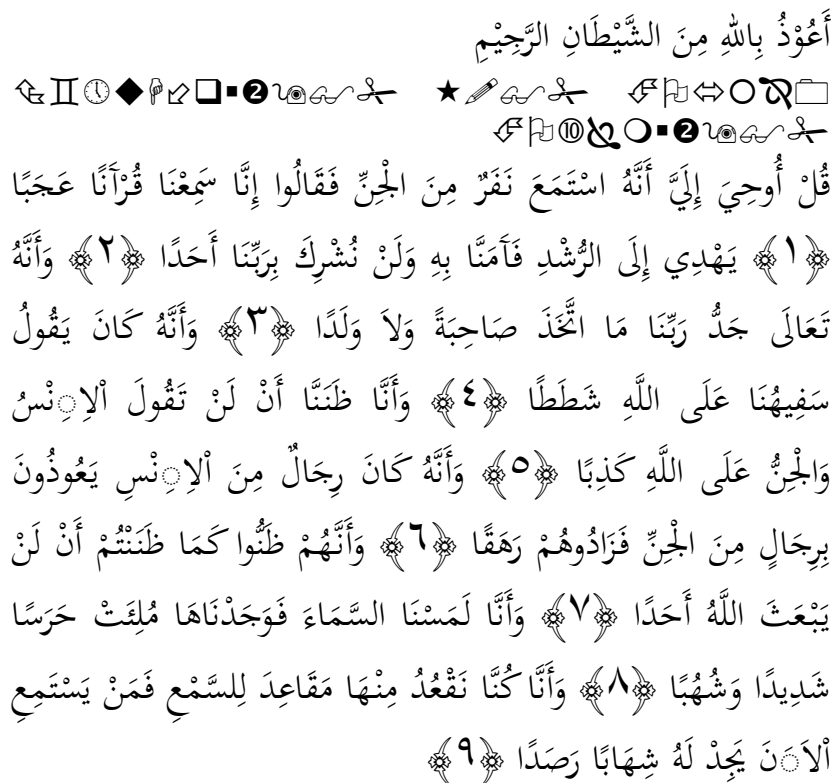 أَعُوْذُ بِاللهِ مِنَ الشَّيْطَانِ الرَّجِيْمِ
قُلْ أُوحِيَ إِلَيَّ أَنَّهُ اسْتَمَعَ نَفَرٌ مِنَ الْجِنِّ فَقَالُوا إِنَّا سَمِعْنَا قُرْآَنًا عَجَبًا
﴿١﴾ يَهْدِي إِلَى الرُّشْدِ فَآَمَنَّا بِهِ وَلَنْ نُشْرِكَ بِرَبِّنَا أَحَدًا ﴿٢﴾ وَأَنَّهُ
تَعَالَى جَدُّ رَبِّنَا مَا اتَّخَذَ صَاحِبَةً وَلاَ وَلَدًا ﴿٣﴾ وَأَنَّهُ كَانَ يَقُولُ
سَفِيهُنَا عَلَى اللَّهِ شَطَطًا ﴿٤﴾ وَأَنَّا ظَنَنَّا أَنْ لَنْ تَقُولَ اْلاِنْسُ
وَالْجِنُّ عَلَى اللَّهِ كَذِبًا ﴿٥﴾ وَأَنَّهُ كَانَ رِجَالٌ مِنَ اْلاِنْسِ يَعُوذُونَ
بِرِجَالٍ مِنَ الْجِنِّ فَزَادُوهُمْ رَهَقًا ﴿٦﴾ وَأَنَّهُمْ ظَنُّوا كَمَا ظَنَنْتُمْ أَنْ لَنْ
يَبْعَثَ اللَّهُ أَحَدًا ﴿٧﴾ وَأَنَّا لَمَسْنَا السَّمَاءَ فَوَجَدْنَاهَا مُلِئَتْ حَرَسًا
شَدِيدًا وَشُهُبًا ﴿٨﴾ وَأَنَّا كُنَّا نَقْعُدُ مِنْهَا مَقَاعِدَ لِلسَّمْعِ فَمَنْ يَسْتَمِعِ
اْلاَنَ يَجِدْ لَهُ شِهَابًا رَصَدًا ﴿٩﴾